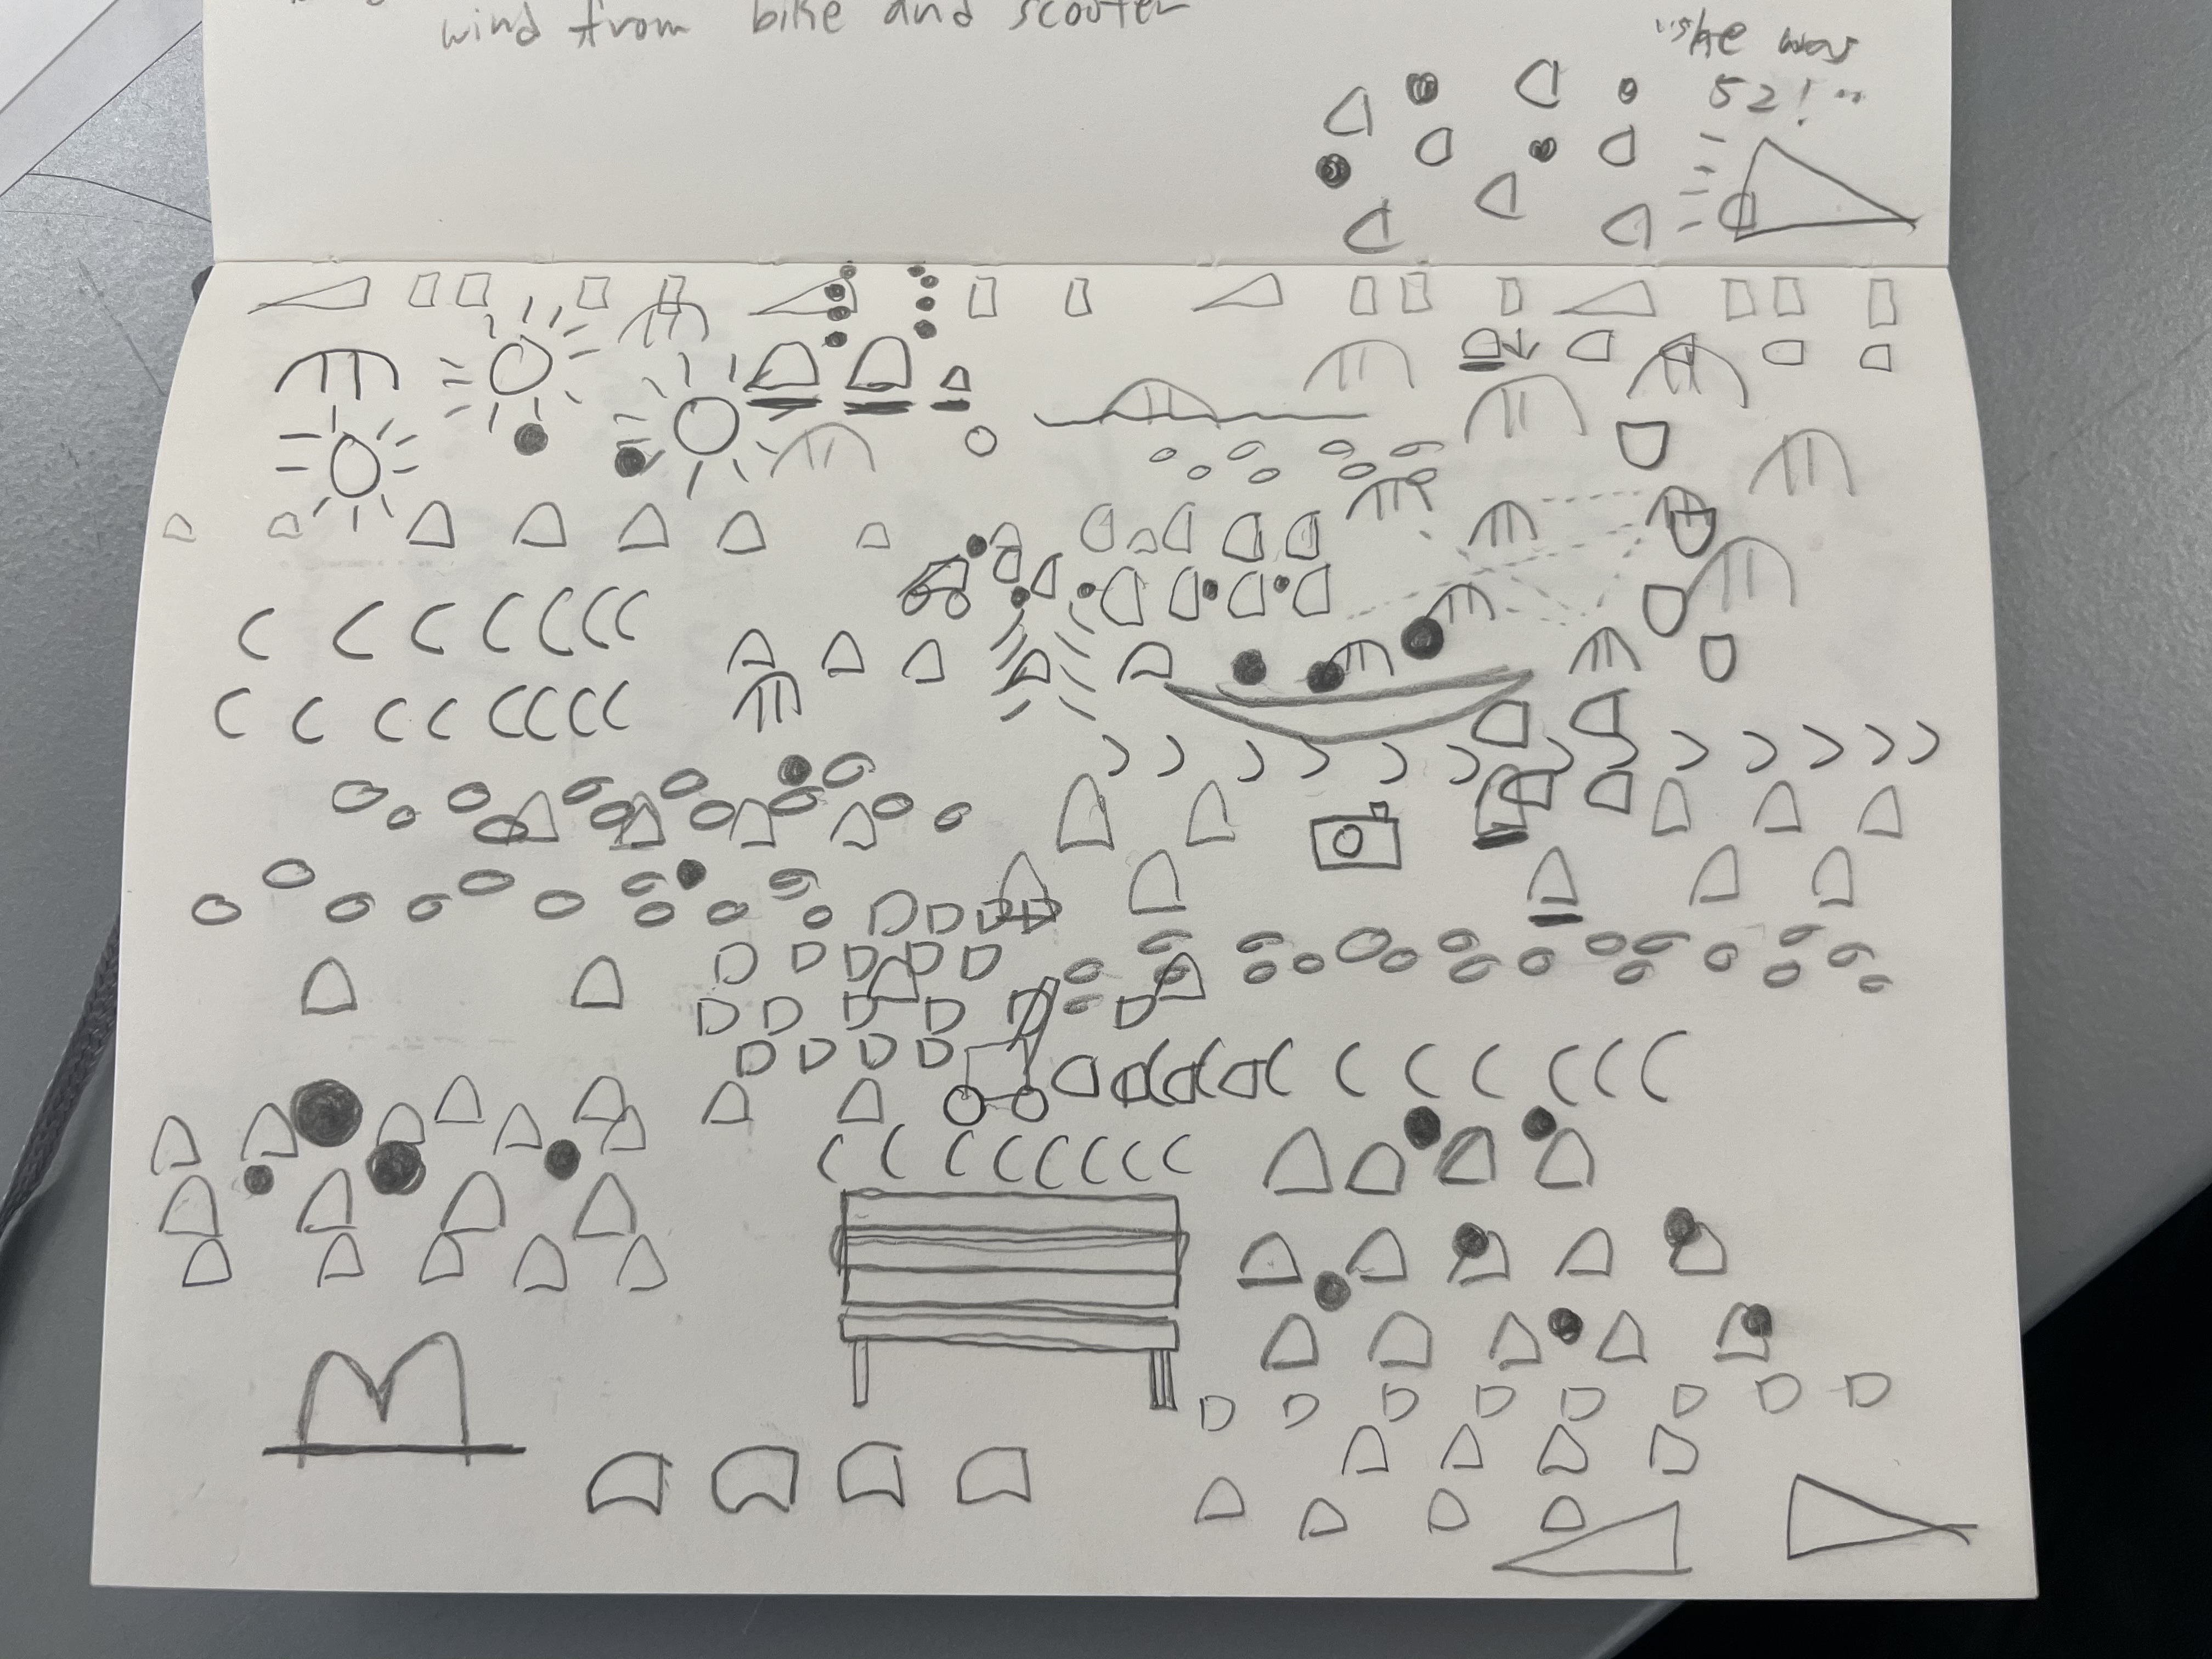 wind from bike and scooter
"she was
52!"